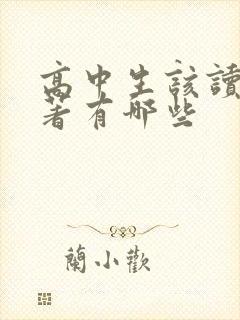 高中生該讀
著有哪些
蘭小歡